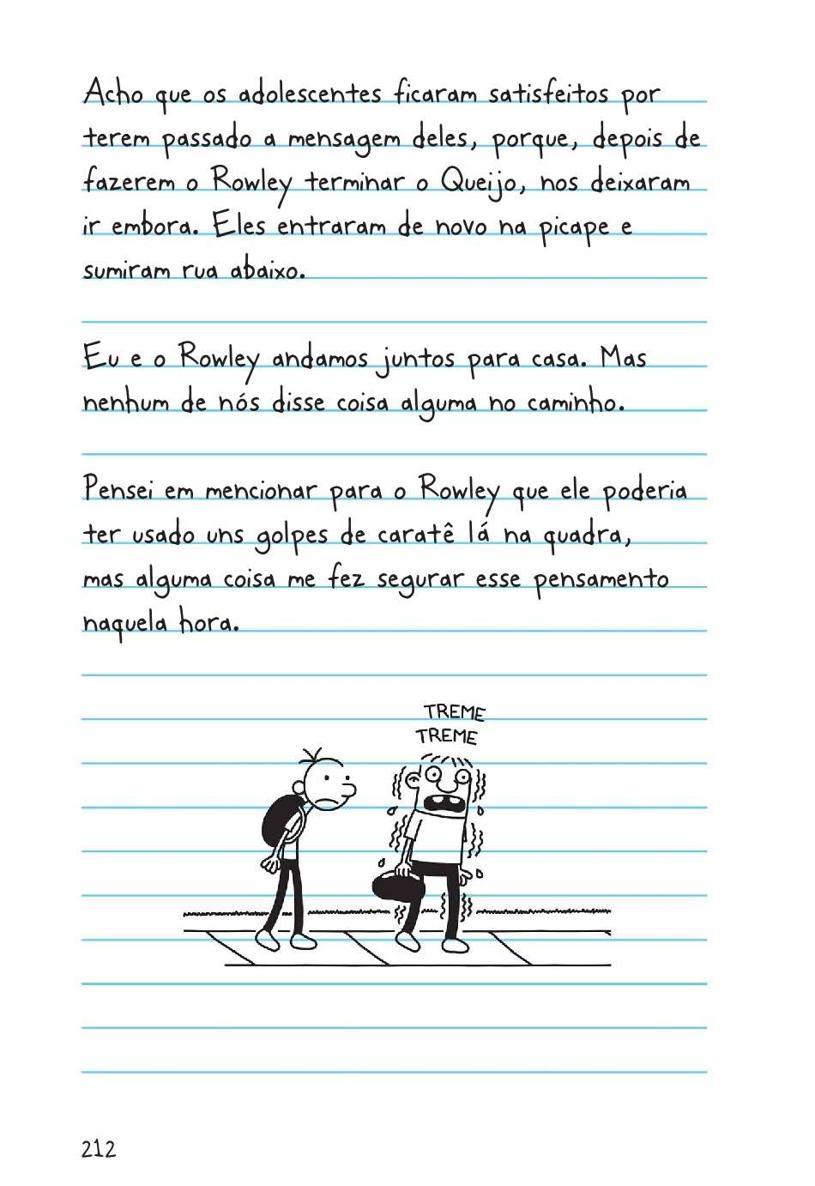 Acho que os adolescentes ficaram satisfeitos por
terem passado a mensagem deles, porque, depois de
fazerem o Rowley terminar o Queijo, nos deixaram
ir embora. Eles entraram de novo na picape e
sumiram rua abaixo.
Eu e o Rowley andamos juntos para casa. Mas
nenhum de nós disse coisa alguma no caminho.
Pensei em mencionar para o Rowley que ele poderia
ter usado uns golpes de caratê lá na quadra,
mas alguma coisa me fez segurar esse pensamento
naquela hora.
TREME
TREME
212